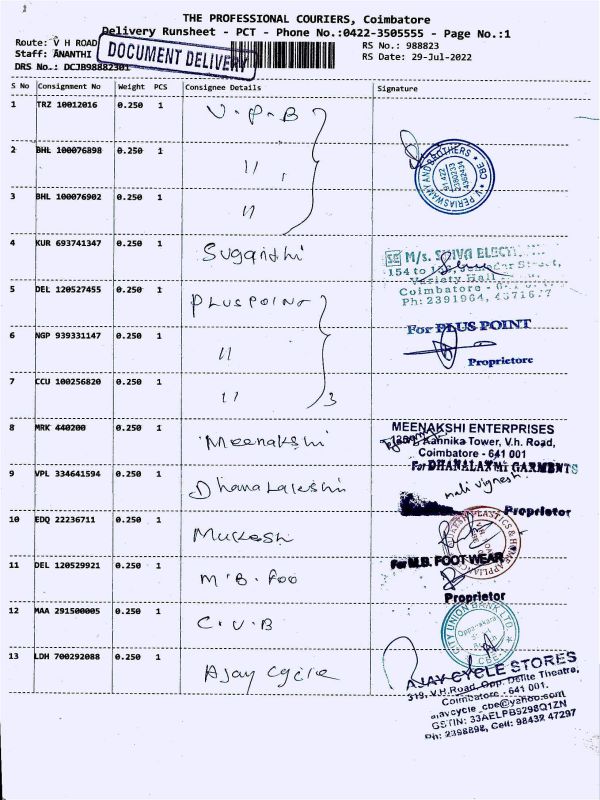 THE PROFESSIONAL COURIERS, Coimbatore
Delivery Runsheet - PCT - Phone No.:0422-3505555 - Page No.:1
Route: V H ROAD
RS No.: 988823
Staff: ANANTHI
RS Date: 29-Jul-2022
DRS No.: DCJB98882301
DOCUMENT DELIVERY
S No Consignment No Weight PCS Consignee Details Signature
1 TRZ 10012016 0.250 1 V.P.B
2 BHL 100076898 0.250 1 "
V. PERIASWAMY AND BROTHERS * CBE *
3 BHL 100076902 0.250 1 "
4 KUR 693741347 0.250 1 Sugandhi
M/s. SHIVA
154 to
Variety Hall
Coimbatore -
Ph: 2391964,
5 DEL 120527455 0.250 1 PLUSPOINT
For PLUS POINT
6 NGP 939331147 0.250 1 "
Proprietore
7 CCU 100256820 0.250 1 " 3
8 MRK 440200 0.250 1 Meenakshi
MEENAKSHI ENTERPRISES
Aannika Tower, V.h. Road,
Coimbatore - 641 001
For DHANALAXMI GARMENTS
9 VPL 334641594 0.250 1 Dhanalakshmi
mali vignesh
Proprietor
10 EDQ 22236711 0.250 1 Mukesh
PLASTICS & HOME APPLIANCES
11 DEL 120529921 0.250 1 M.B.Foo
For M.B. FOOT WEAR
Proprietor
12 MAA 291500005 0.250 1 C.U.B
CITY UNION BANK LTD.
Oppanakara
Branch
CBE-1
13 LDH 700292088 0.250 1 Ajay Cycle
AJAY CYCLE STORES
319, V.H.Road, Opp. Delite Theatre,
Coimbatore - 641 001.
ajaycycle_cbe@yahoo.com
GSTIN: 33AELPB9298Q1ZN
Ph: 2398898, Cell: 98432 47297